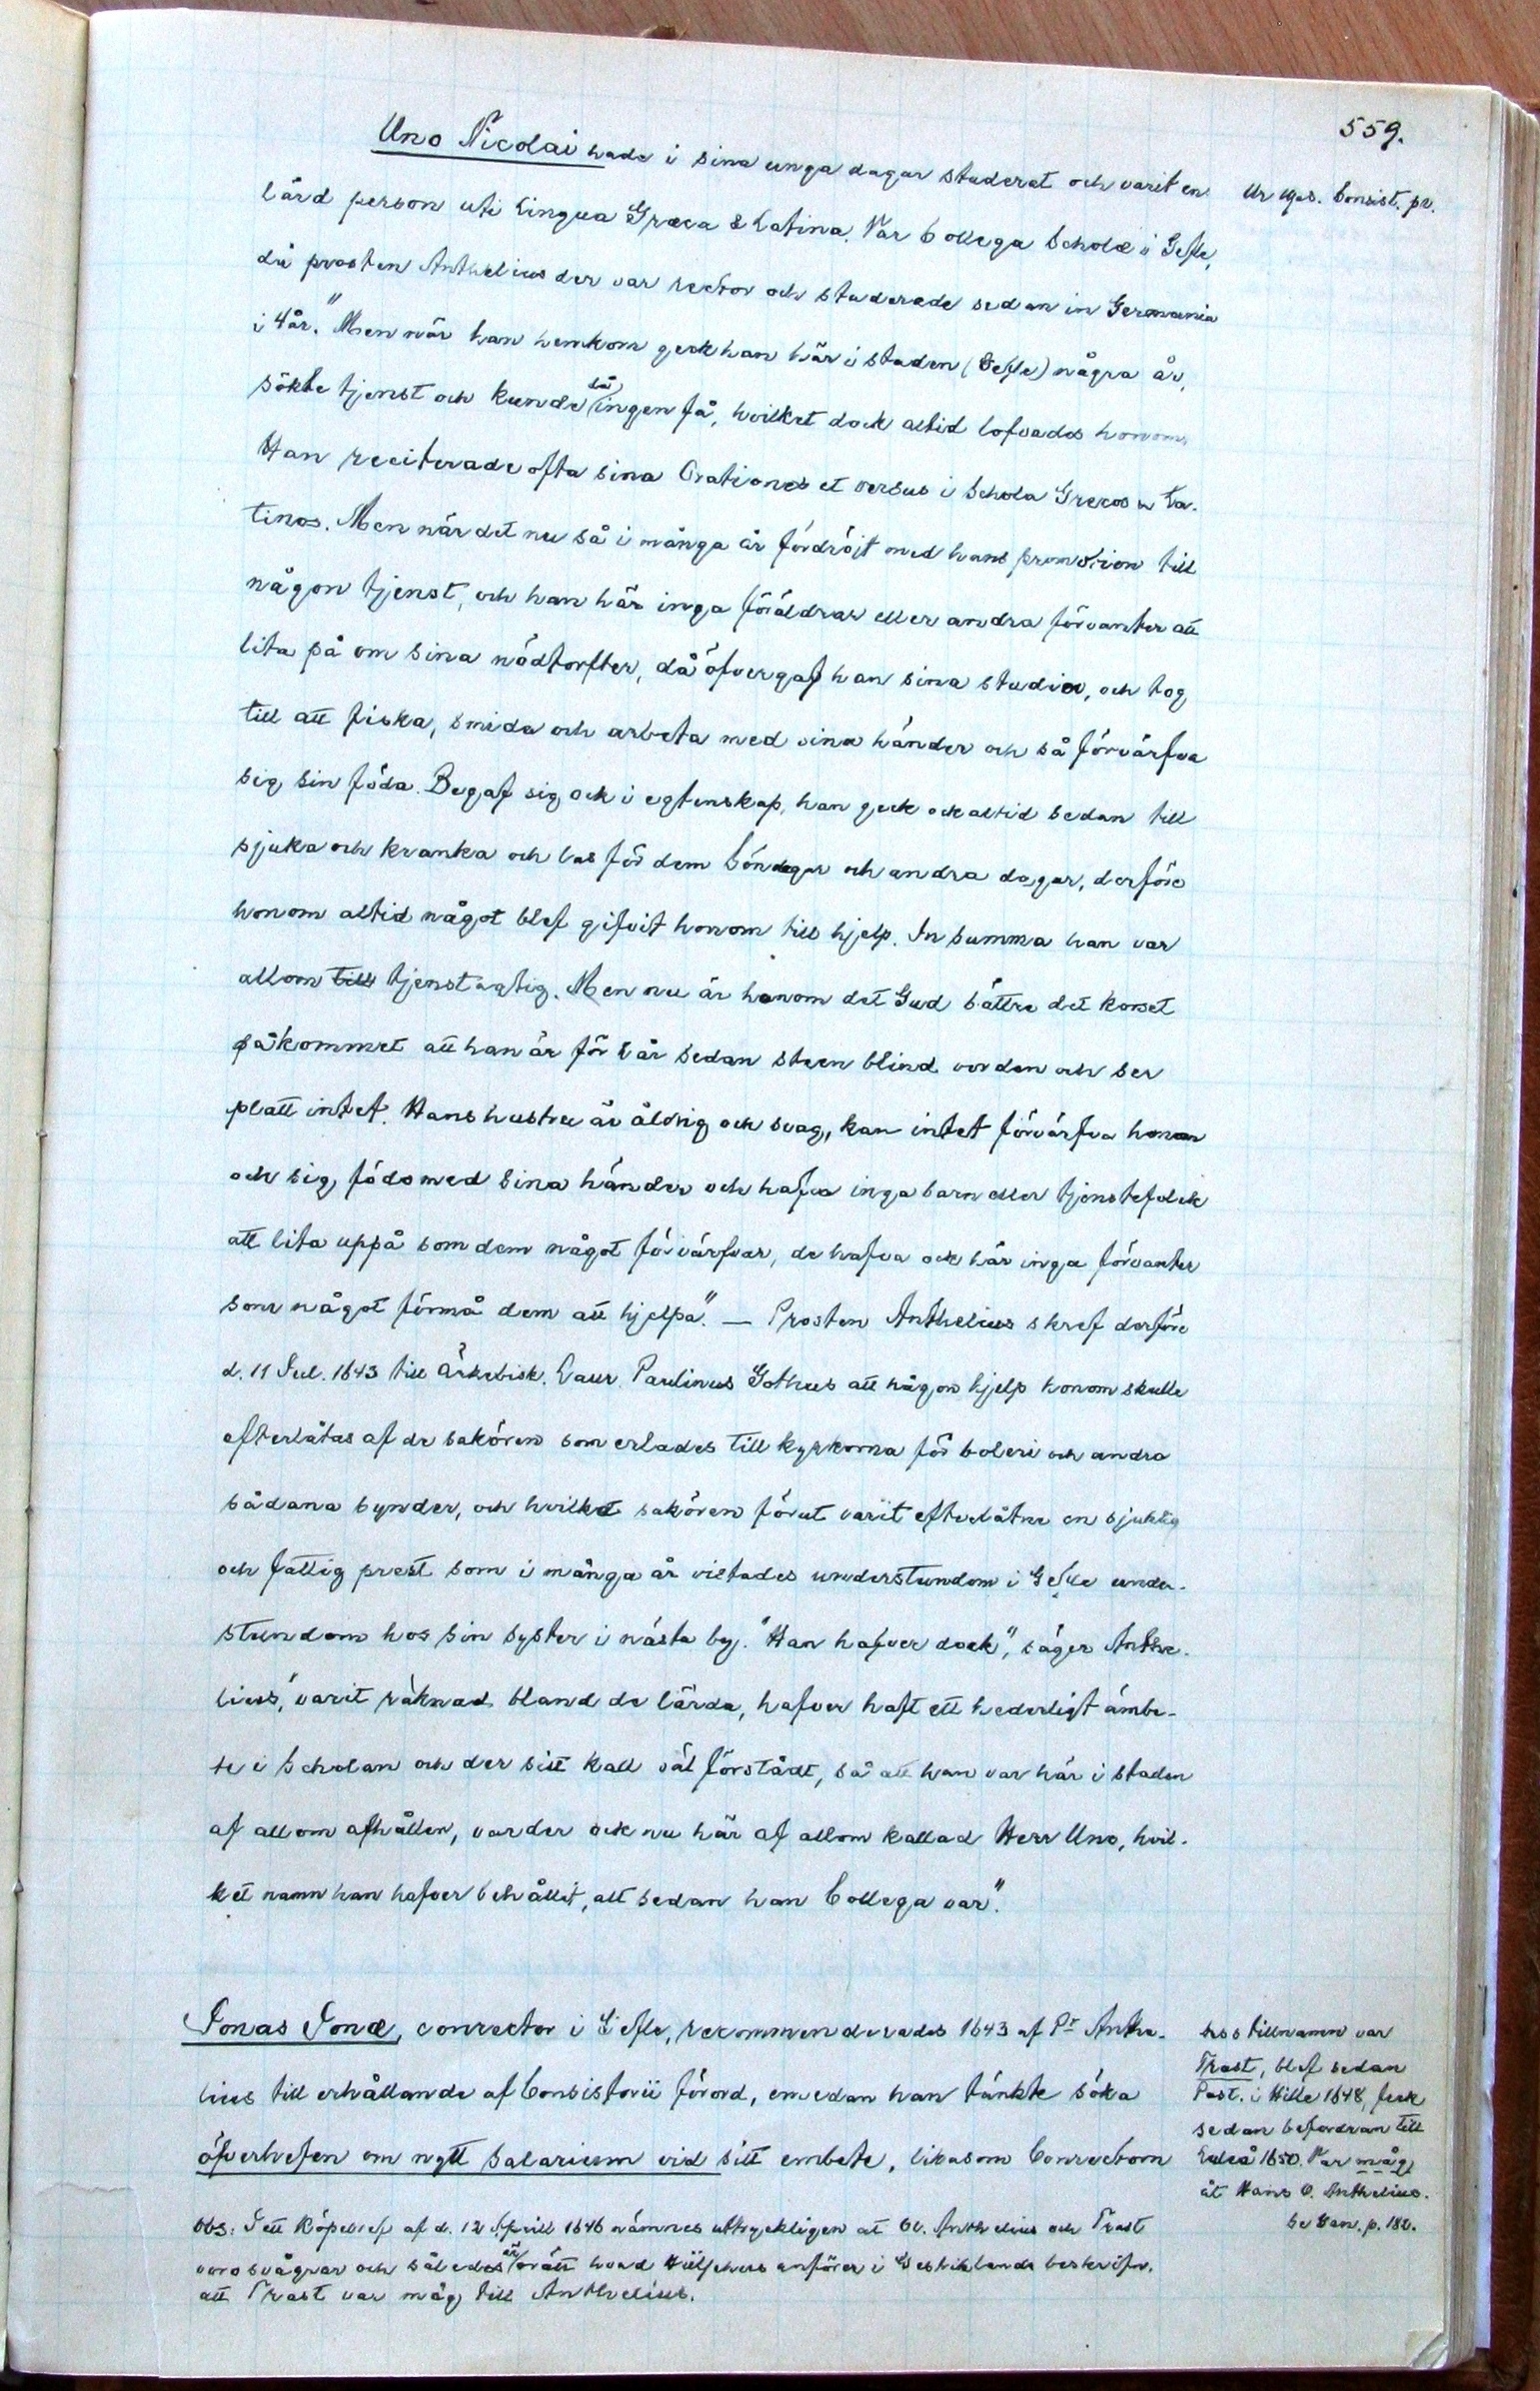 559.
Uno Nicolai hade i sina unga dagar studerat och varit en
Ur Ups. Consist. pr.
lärd person uti Lingua Græca & Latina. Var Collega Scholæ i Gefle,
då prosten Anthelius der var rector och studerade sedan in Germania
i 4 år. "Men när han hemkom geck han här i staden (Gefle) några år,
sökte tjenst och kunde då ingen få, hvilket dock altid lofvades honom.
Han reciterade ofta sina Orationes et versus i Schola Grecos & La-
tinos. Men när det nu så i många år fördröjt med hans promotion till
någon tjenst, och han här inga föräldrar eller andra förvanter att
lita på om sina nödtorfter, då öfvergaf han sina studier, och tog
till att fiska, smida och arbeta med sina händer och så förvärfva
sig sin föda. Begaf sig ock i egtenskap, han geck ock altid sedan till
sjuka och kranka och las för dem Söndagar och andra dagar, derföre
honom altid något blef gifvit honom till hjelp. In summa han var
allom till tjenstagtig. Men nu är honom det Gud bättre det korset
påkommet att han är för 2 år sedan steen blind vorden och ser
platt intet. Hans hustru är åldrig och svag, kan intet förvärfva honom
och sig föda med sina händer och hafva inga barn eller tjenstefolck
att lita uppå som dem något förvärfvar, de hafva ock här inga förvanter
som något förmå dem att hjelpa". — Prosten Anthelius skref derföre
d. 11 Jul. 1643 till Ärkebisk. Laur. Paulinus Gothus att någon hjelp honom skulle
efterlåtas af de saköron som erlades till kyrkorna för boleri och andra
sådana synder, och hvilka saköron förut varit efterlåtne en sjuklig
och fattig prest som i många år vistades understundom i Gefle under-
stundom hos sin syster i nästa by. "Han hafver dock", säger Anthe-
lius, "varit räknad bland de lärda, hafver haft ett hederligt ämbe-
te i Scholan och der sitt kall väl förstådt, så att han var här i staden
af allom afhållen, varder ock nu här af allom kallad Herr Uno, hvil-
ket namn han hafver behållit, alt sedan han Collega var".
Jonas Jonæ, conrector i Gefle, recommenderades 1643 af Pr Anthe-
lius till erhållande af Consistorii förord, emedan han tänkte söka
öfverheten om nytt salarium vid sitt embete, likasom Conrectorn
hvss tillnamn var
Trast, blef sedan
Past. i Hille 1648, feck
sedan befordran till
Luleå 1650. Var måg
åt Hans O. Anthelius.
Se Gam. p. 182.
Obs: I ett köpebref af d. 12 April 1646 nämnes uttryckligen at Ol. Anthelius och Trast
voro svågrar och således är orätt hvad Hülphers anförer i Gestriklands beskrifn.
att Trast var måg till Anthelius.